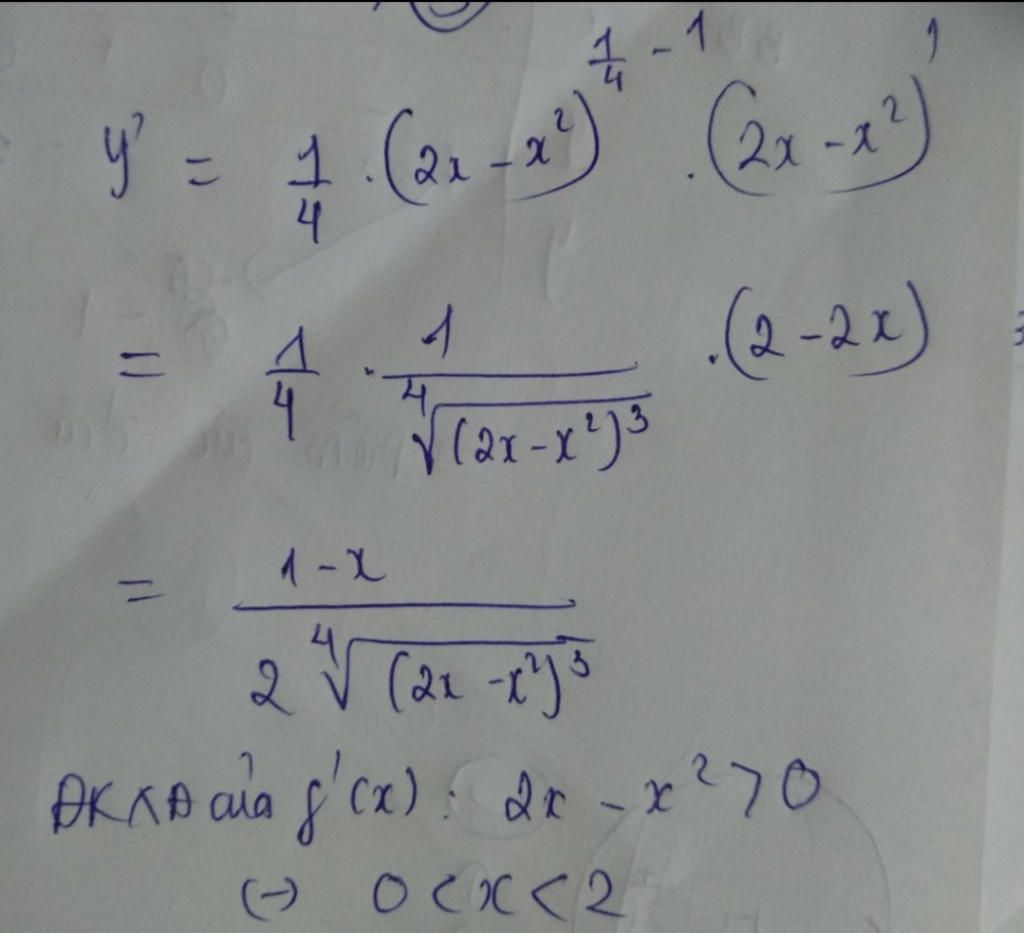 y' = 1/4 . (2x - x²)^(1/4 - 1) . (2x - x²)'
= 1/4 . 1/∜((2x - x²)³) . (2 - 2x)
= (1 - x)/(2 ∜((2x - x²)³))
ĐKXĐ của f'(x) : 2x - x² > 0
(-) 0 < x < 2